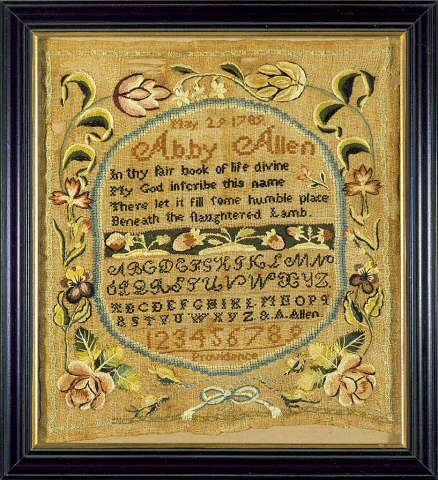 May 29 1789
Abby Allen
In thy fair book of life divine
My God inſcribe this name
There let it fill ſome humble place
Beneath the ſlaughtered Lamb.
ABCDEFGHIKLMN
OPQRSTUVWXYZ
ABCDEFGHIKLMNOPQ
RSTVUWXYZ& A.Allen
123456789
Providence